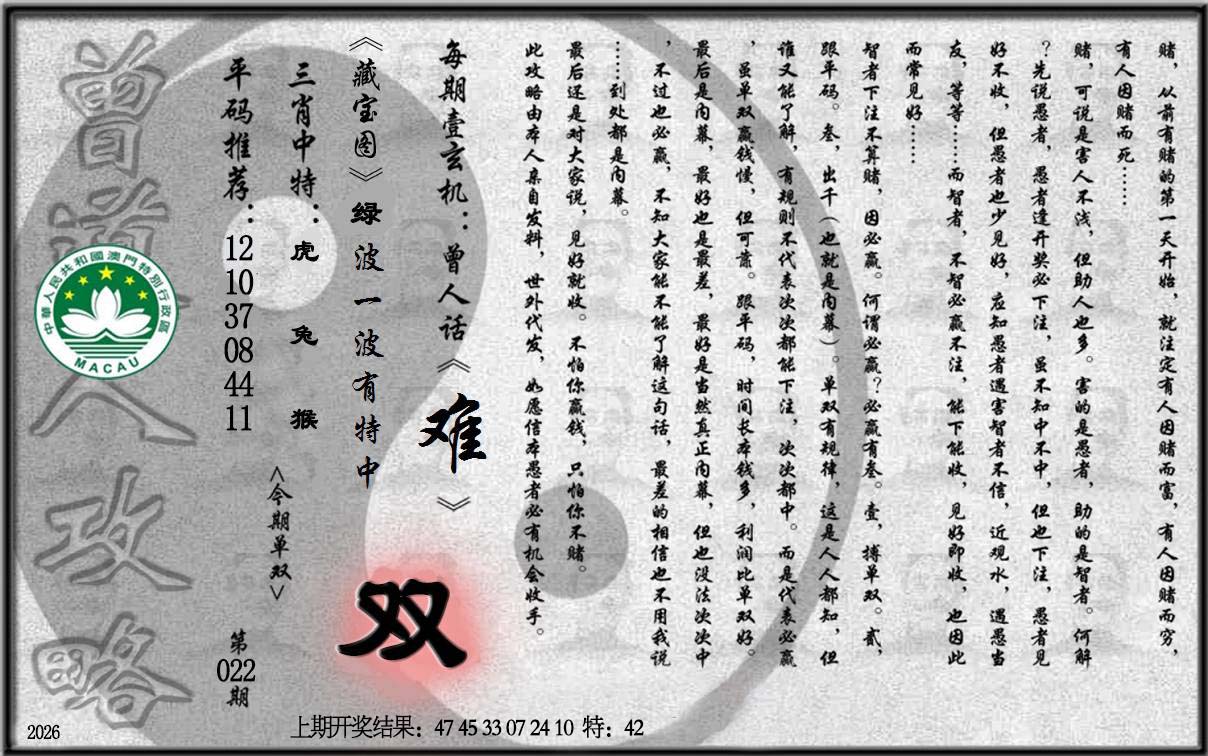 赌，从前有赌的第一天开始，就注定有人因赌而富，有人因赌而穷，
有人因赌而死……
赌，可说是害人不浅，但助人也多。害的是愚者，助的是智者。何解
？先说愚者，愚者逢开奖必下注，虽不知中不中，但也下注，愚者见
好不收，但愚者也少见好，应知愚者遇害智者不信，近观水，遇愚当
友，等等……而智者，不智必赢不注，能下能收，见好即收，也因此
而常见好……
智者下注不算赌，因必赢。何谓必赢？必赢有叁。壹，搏单双。贰，
跟平码。叁，出千（也就是内幕）。单双有规律，这是人人都知，但
谁又能了解，有规则不代表次次都能下注，次次都中。而是代表必赢
，虽单双赢钱慢，但可靠。跟平码，时间长本钱多，利润比单双好。
最后是内幕，最好也是最差，最好是当然真正内幕，但也没法次次中
，不过也必赢，不知大家能不能了解这句话，最差的相信也不用我说
……到处都是内幕。
最后还是对大家说，见好就收。不怕你赢钱，只怕你不赌。
此攻略由本人亲自发料，世外代发，如愿信本愚者必有机会收手。
每期壹玄机：曾人话《难》
《藏宝图》绿波一波有特中
双
三肖中特：虎 兔 猴
<今期单双>
平码推荐：12 10 37 08 44 11
第022期
曾道人攻略
中華人民共和國澳門特別行政區
MACAU
上期开奖结果：47 45 33 07 24 10 特：42
2026